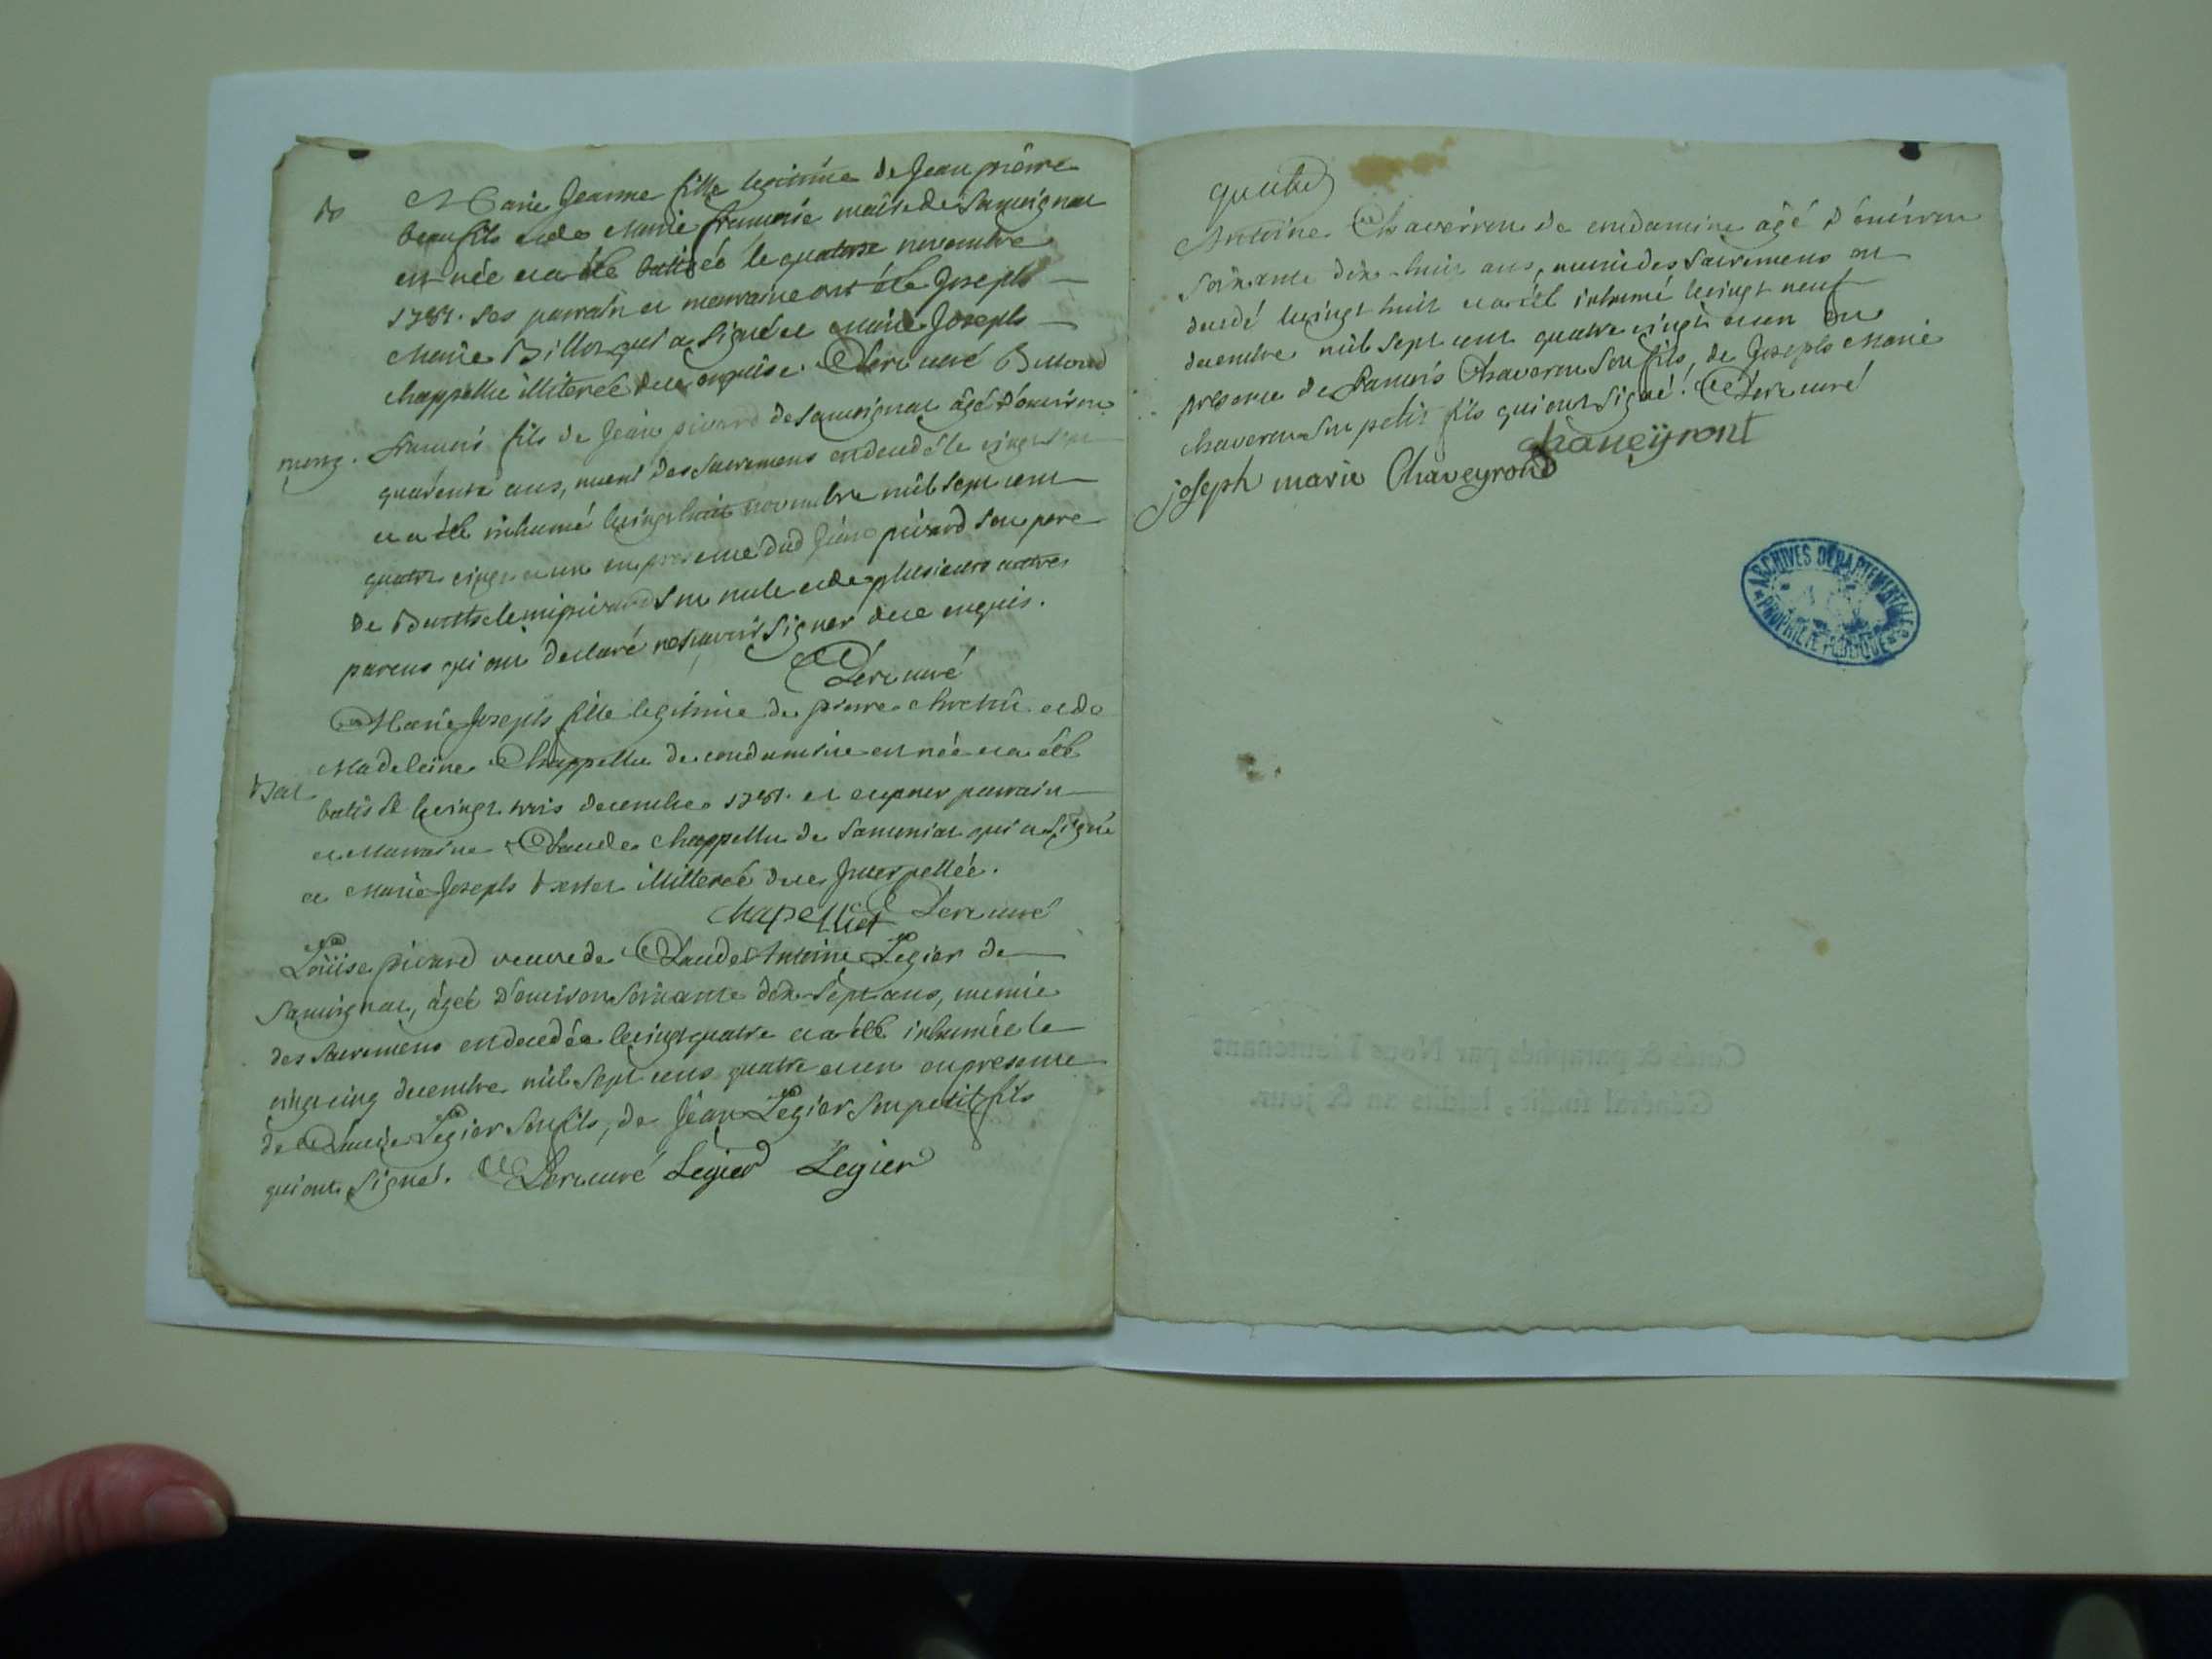 Marie Jeanne fille legitime de Jean pierre
beaufils et de Marie francoise maitre de Samoignat
est née et a été batisée le quatorse novembre
1781. Ses parrain et marraine ont été Joseph
Marie Billon qui a signé et Marie Joseph
chappellu illiterée de ce enquise. Clerc curé Billiond
francois fils de Jean pivard de Samoignat âgé d'environ
quarente ans, muni des Sacremens est decedé le vingt sept
et a été inhumé le vingt huit novembre mil sept cent
quatre vingt et un en presence dud Jean pivard son pere
de Barthelemi pivard son oncle et de plusieurs autres
parens qui ont declaré ne savoir signer de ce enquis.
Clerc curé
Marie Joseph fille legitime de pierre et de
Madeleine Chappellu de condamine est née et a été
Bat
batisée le vingt trois decembre 1781. et eu pour parrain
et Marraine Claude Chappellu de Samoniat qui a signé
et Marie Joseph illitterée de ce Interpellée.
Chapelliet Clerc curé
Loüise pivard veuve de Claude Antoine Legier de
Samoignat, âgée d'environ soixante dix sept ans, munie
des sacremens est decedée le vingt quatre et a été inhumée le
vingt cinq decembre mil sept cens quatre et un en presence
de Claude Legier son fils, de Jean Legier son petit fils
qui ont signé. Clerc curé Legier Legier
Antoine Chaveiron de condamine âgé d'environ
soixante dix-huit ans, muni des sacremens est
decedé le vingt huit et a été inhumé le vingt neuf
decembre mil sept cent quatre vingt et un en
presence de francois Chaveron son fils, de Joseph Marie
chaveron son petit fils qui ont signé. Clerc curé
chaneÿront
joseph marie Chaveyrond
ARCHIVES DÉPARTEMENTALES
PROPRIÉTÉ PUBLIQUE
Cotés & paraphés par Nous Lieutenant
Général susdit, lesdits an & jour.